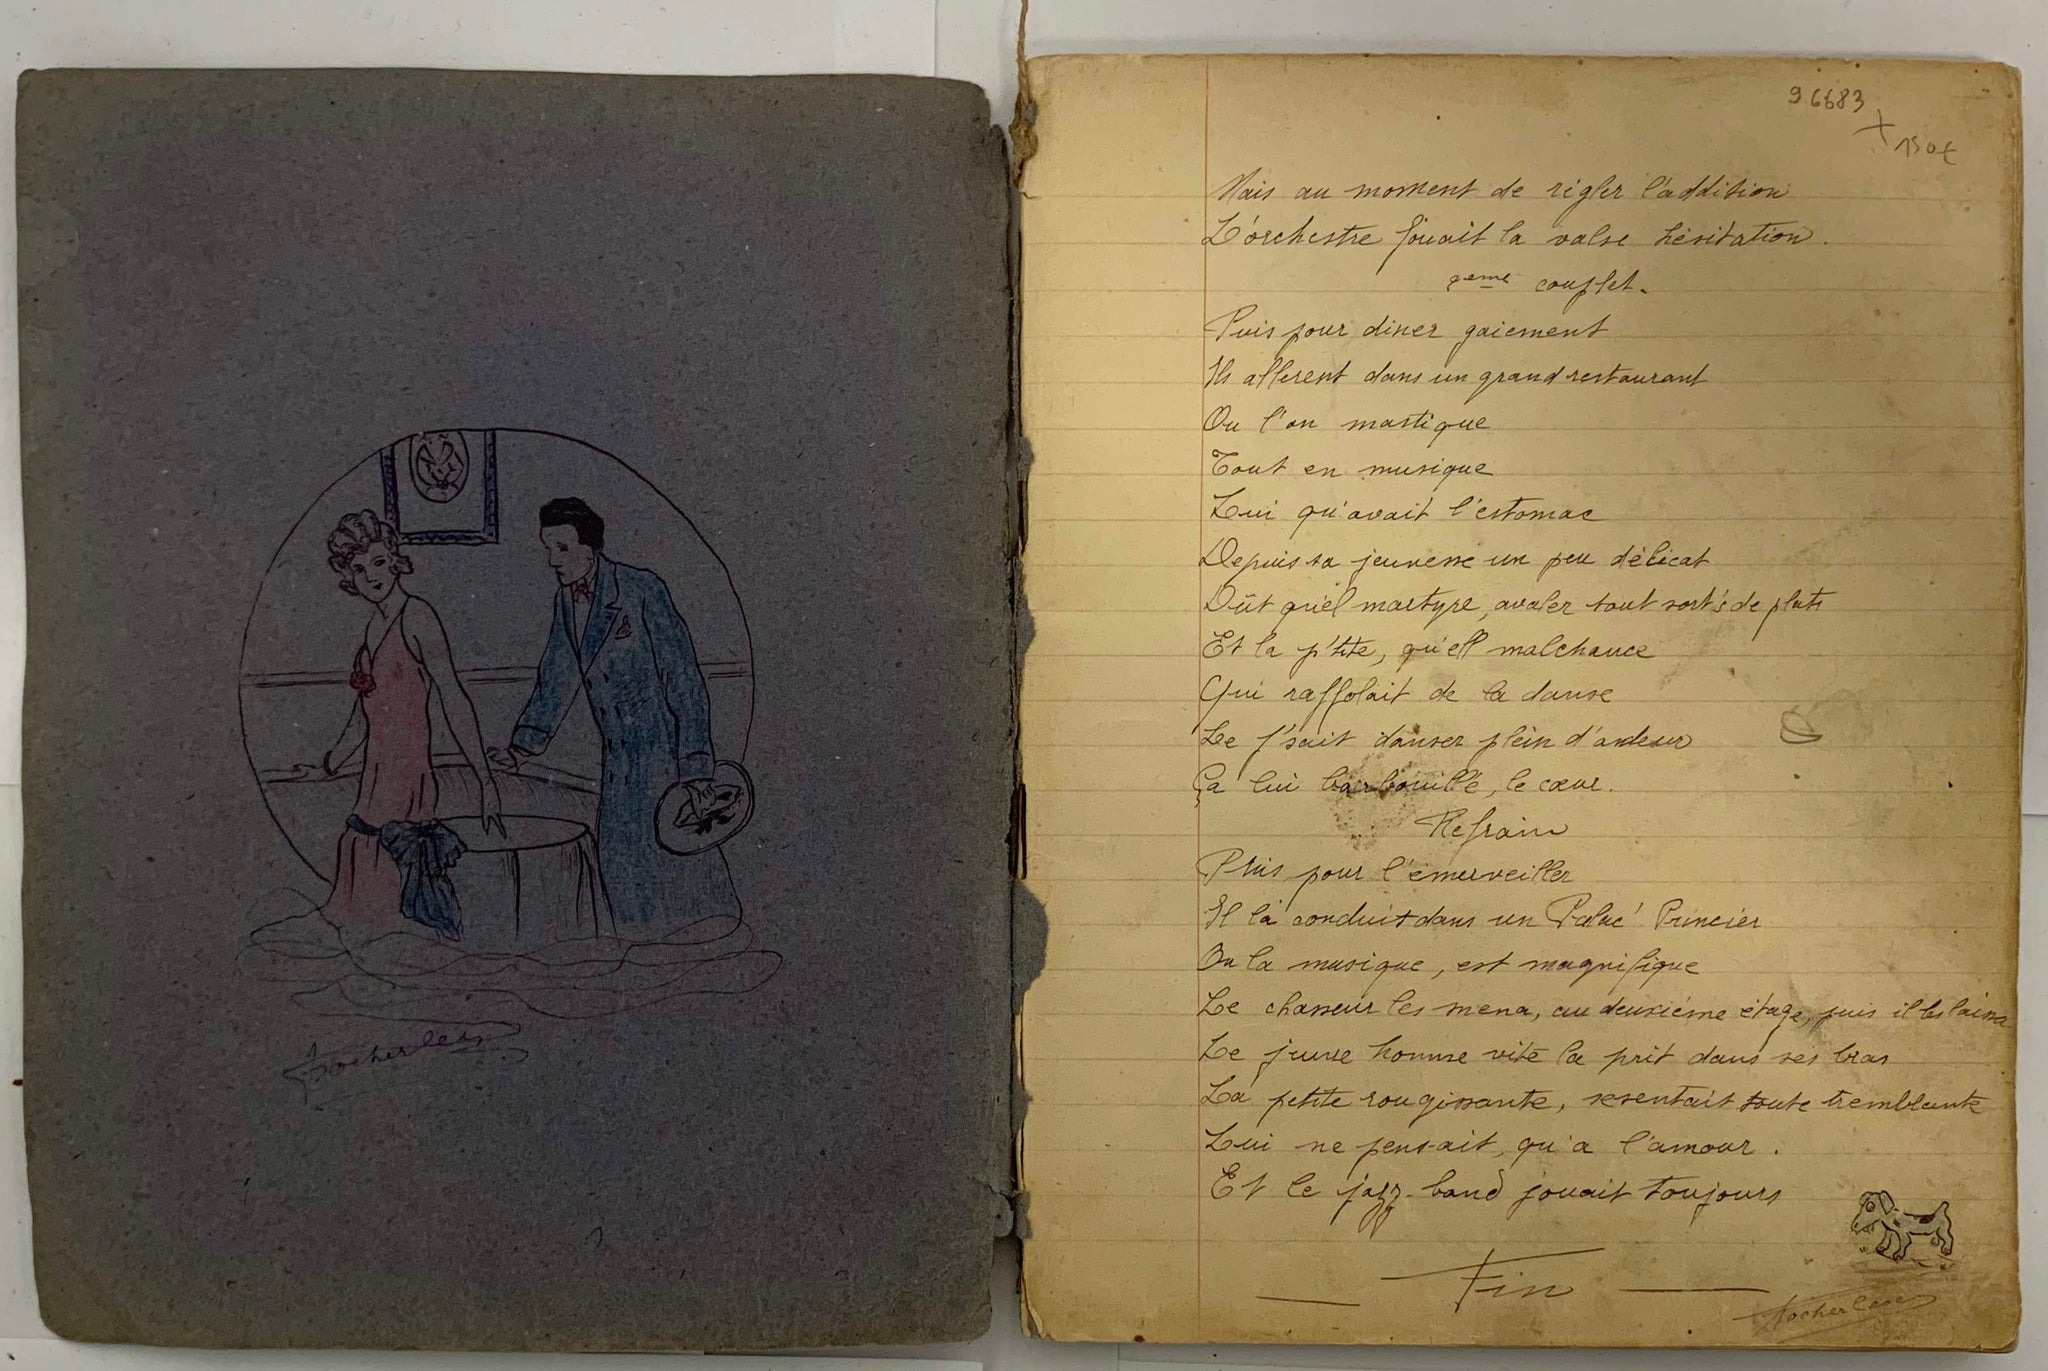 96683
150€
Mais au moment de régler l'addition
L'orchestre jouait la valse hésitation.
2eme couplet.
Puis pour diner gaiement
Ils allerent dans un grand restaurant
Ou l'on mastique
Tout en musique
Lui qu'avait l'estomac
Depuis sa jeunesse un peu délicat
Dût qu'el martyre, avaler tout sort's de plats
Et la p'tite, qu'ell malchance
Qui raffolait de la danse
Le f'sait danser plein d'ardeur
Ça lui barbouillé, le cœur.
Refrain
Puis pour l'émerveiller
Il la conduit dans un Palac' Princier
Ou la musique, est magnifique
Le chasseur les mena, au deuxiéme étage, puis il les laissa
Le jeune homme vite la prit dans ses bras
La petite rougissante, sesentait toute tremblante
Lui ne pensait, qu'a l'amour.
Et le jazz-band jouait toujours
Fin